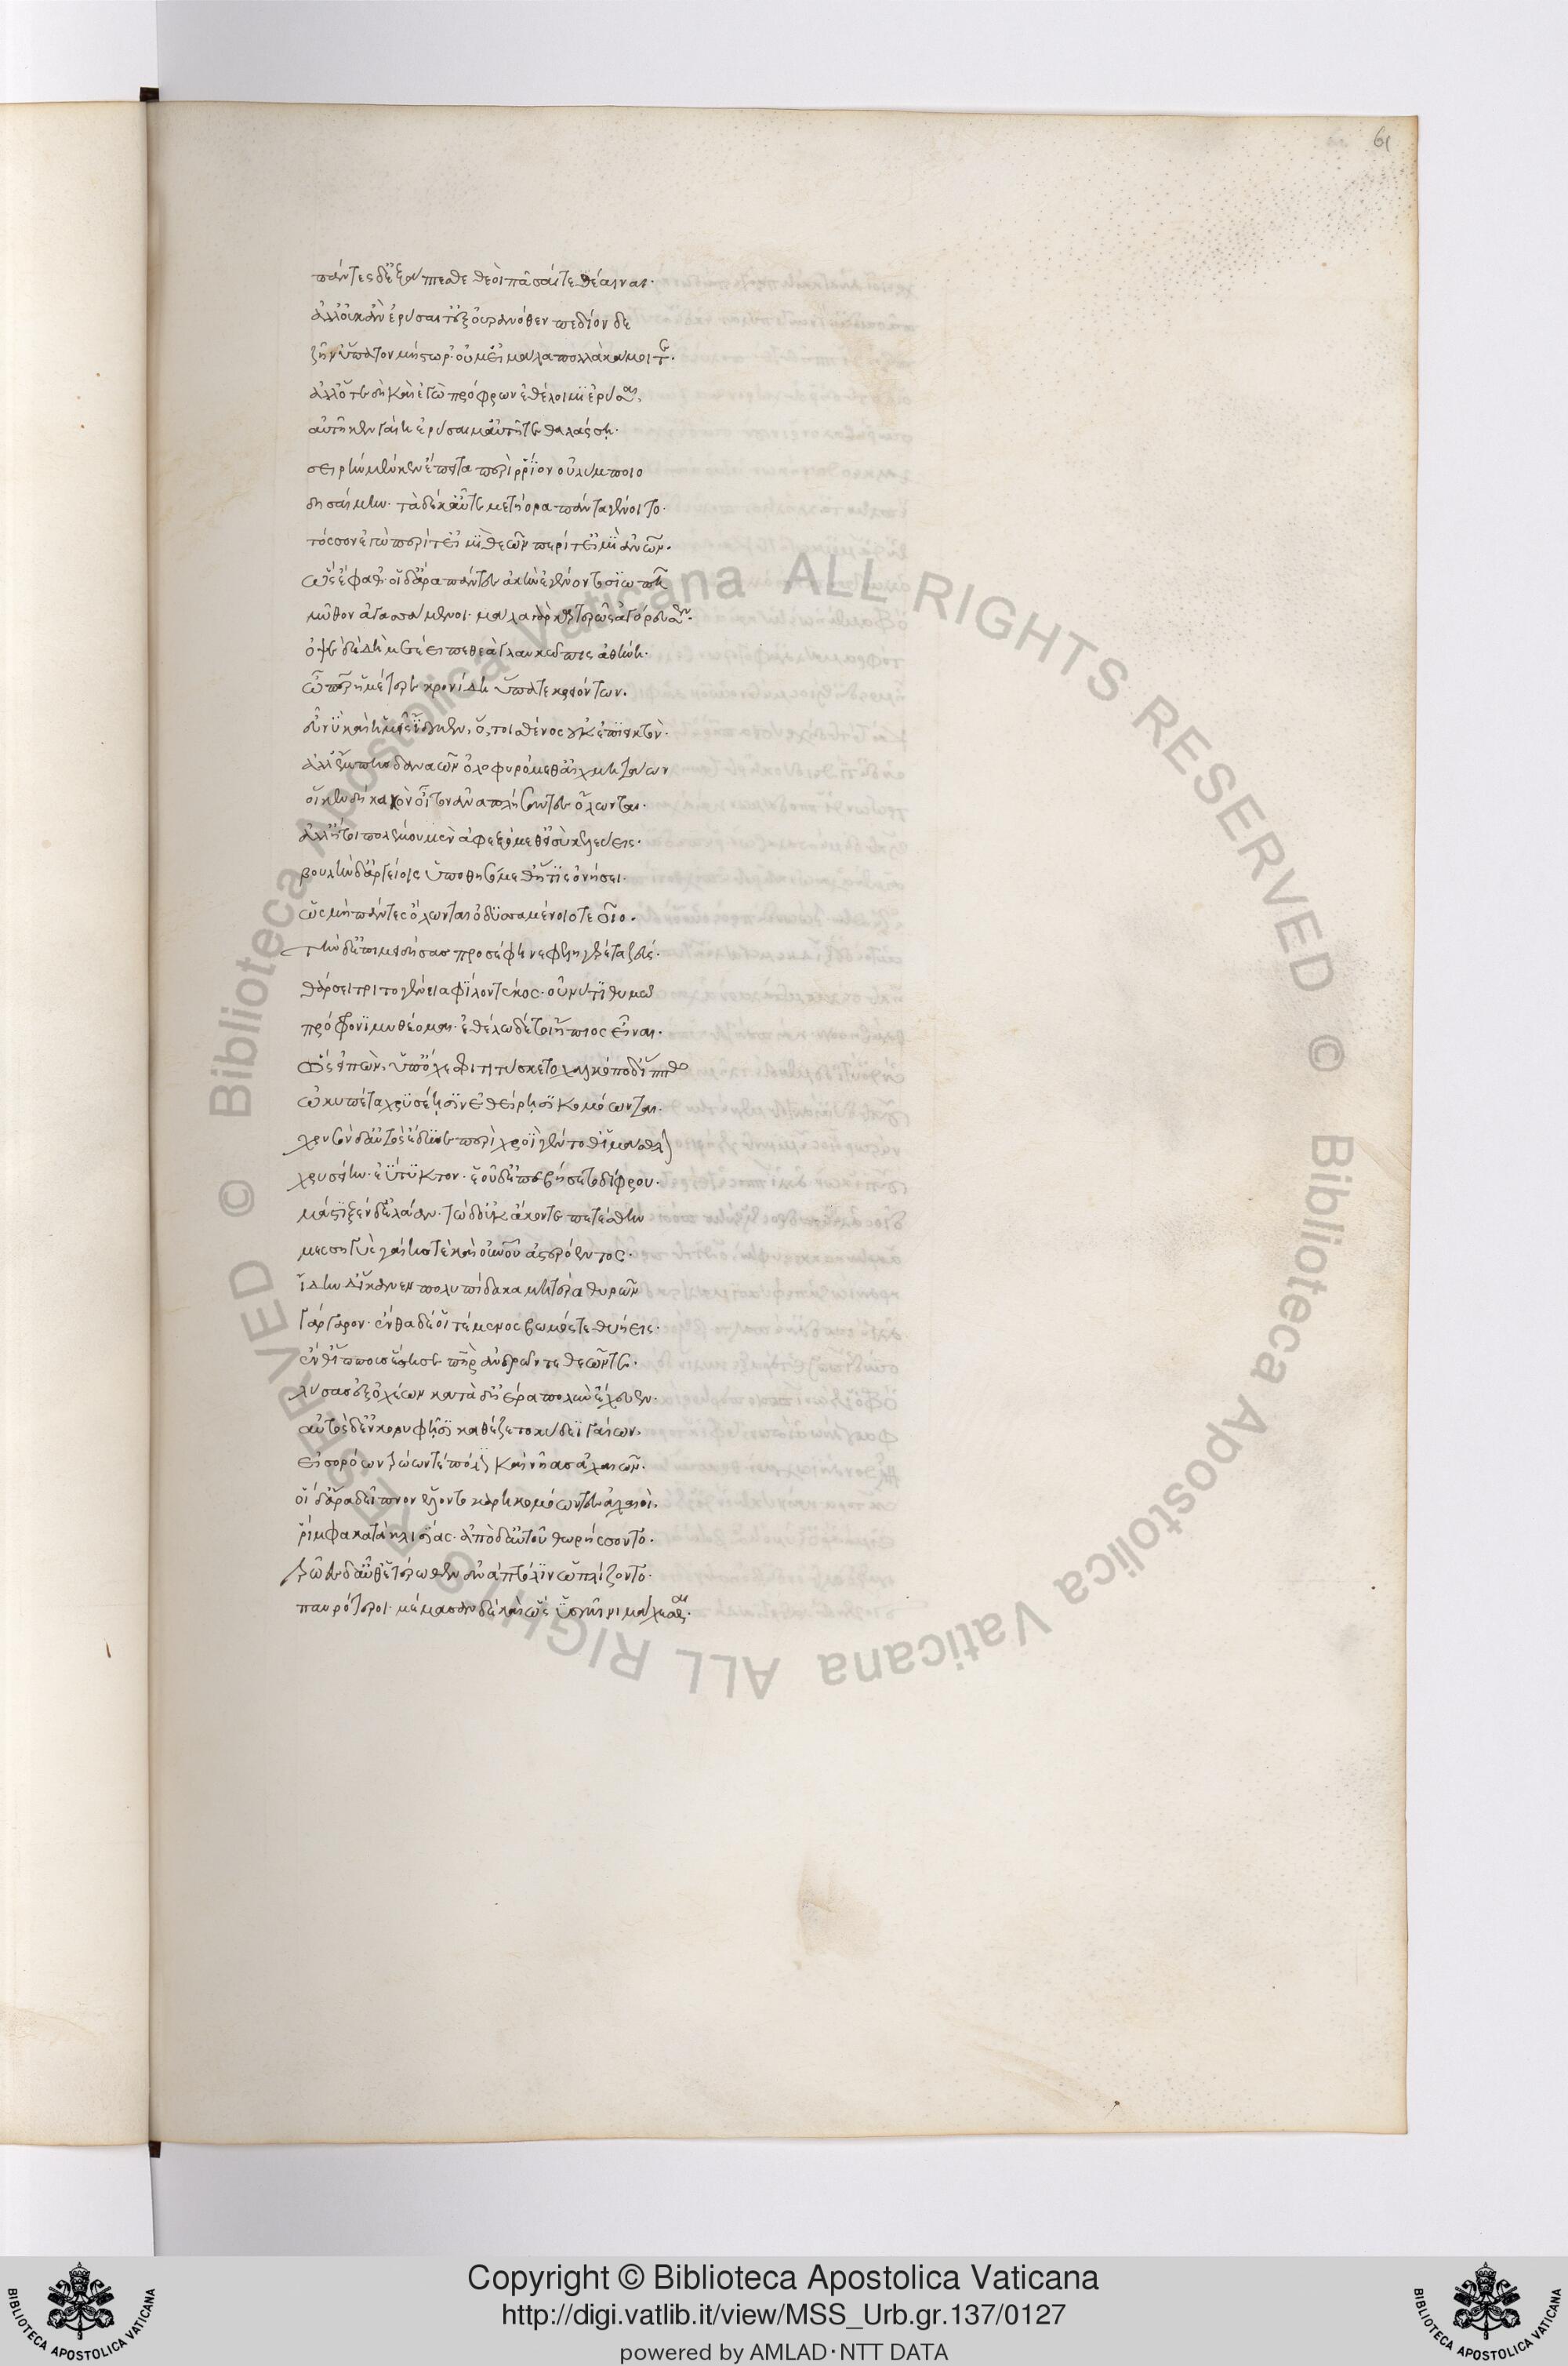 πάντες δ' ἐξάπτεσθε θεοὶ πᾶσαί τε θέαιναι·
ἀλλ' οὐκ ἂν ἐρύσαιτ' ἐξ οὐρανόθεν πεδίον δε
ζῆν' ὕπατον μήστωρ'· οὐδ' εἰ μάλα πολλὰ κάμοιτε·
ἀλλ' ὅτε δὴ καὶ ἐγὼ πρόφρων ἐθέλοιμι ἐρύσαι,
αὐτῇ κεν γαίῃ ἐρύσαιμ' αὐτῇ τε θαλάσσῃ·
σειρὴν μέν κεν ἔπειτα περὶ ῥίον οὐλύμποιο
δησαίμην· τὰ δέ κ' αὖτε μετήορα πάντα γένοιτο·
τόσσον ἐγὼ περί τ' εἰμὶ θεῶν περί τ' εἰμὶ ἀνων·
ὣς ἔφαθ'· οἱ δ' ἄρα πάντες ἀκὴν ἐγένοντο σιωπῇ
μῦθον ἀγασσάμενοι· μάλα γὰρ κρατερῶς ἀγόρευσεν·
ὀψὲ δὲ δὴ μετέειπε θεὰ γλαυκῶπις ἀθήνη·
ὦ πάτερ ἡμέτερε κρονίδη ὕπατε κρειόντων·
εὖ νυ καὶ ἡμεῖς ἴδμεν, ὅ, τοι σθένος οὐκ ἐπιεικτόν·
ἀλλ' ἔμπης δαναῶν ὀλοφυρόμεθ' αἰχμητάων
οἵ κεν δὴ κακὸν οἶτον ἀναπλήσαντες ὄλωνται·
ἀλλ' ἤτοι πολέμου μὲν ἀφεξόμεθ' εἰ σὺ κελεύεις·
βουλὴν δ' ἀργείοις ὑποθησόμεθ' ἥτις ὀνήσει·
ὡς μὴ πάντες ὄλωνται ὀδυσσαμένοιο τεοῖο·
τὴν δ' ἐπιμειδήσας προσέφη νεφεληγερέτα ζεύς·
θάρσει τριτογένεια φίλον τέκος· οὔ νύ τι θυμῷ
πρόφρονι μυθέομαι· ἐθέλω δέ τοι ἤπιος εἶναι·
ὣς εἰπὼν, ὑπ' ὄχεσφι τιτύσκετο χαλκόποδ' ἵππω
ὠκυπέτα χρυσέῃσιν ἐθείρῃσι κομόωντας·
χρυσὸν δ' αὐτὸς ἔδυνε περὶ χροῒ· γέντο δ' ἱμάσθλην
χρυσείην· εὔτυκτον· ἑοῦ δ' ἐπεβήσετο δίφρου·
μάστιξεν δ' ἐλάαν· τὼ δ' οὐκ ἄκοντε πετέσθην
μεσσηγὺς γαίης τε καὶ οὐρανοῦ ἀστερόεντος·
ἴδην δ' ἵκανεν πολυπίδακα μητέρα θηρῶν
γάργαρον· ἔνθα δέ οἱ τέμενος βωμός τε θυήεις·
ἔνθ' ἵππους ἔστησε πατὴρ ἀνδρῶν τε θεῶν τε·
λύσας ἐξ ὀχέων κατὰ δ' ἠέρα πολὺν ἔχευεν·
αὐτὸς δ' ἐν κορυφῇσι καθέζετο κύδεϊ γαίων,
εἰσορόων τρώων τε πόλιν καὶ νῆας ἀχαιῶν·
οἱ δ' ἄρα δεῖπνον ἕλοντο κάρη κομόωντες ἀχαιοὶ,
ῥίμφα κατὰ κλισίας· ἀπὸ δ' αὐτοῦ θωρήσσοντο·
τρῶες δ' αὖθ' ἑτέρωθεν ἀνὰ πτόλιν ὡπλίζοντο·
παυρότεροι· μέμασαν δὲ καὶ ὣς ὑσμῖνι μάχεσθαι·
61
Copyright © Biblioteca Apostolica Vaticana
http://digi.vatlib.it/view/MSS_Urb.gr.137/0127
powered by AMLAD·NTT DATA
© Biblioteca Apostolica Vaticana ALL RIGHTS RESERVED © Biblioteca Apostolica Vaticana ALL RIGHTS RESERVED
BIBLIOTECA APOSTOLICA VATICANA
BIBLIOTECA APOSTOLICA VATICANA